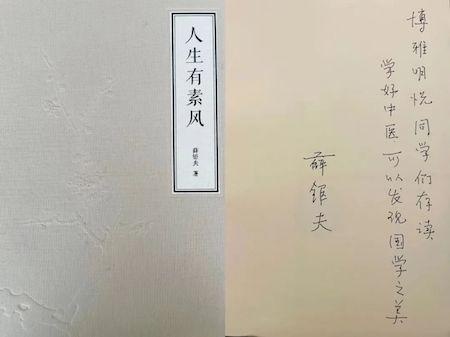 人生有素风
薛钜夫 著
博雅明悦同学们存读
学好中医可以发现国学之美
薛钜夫